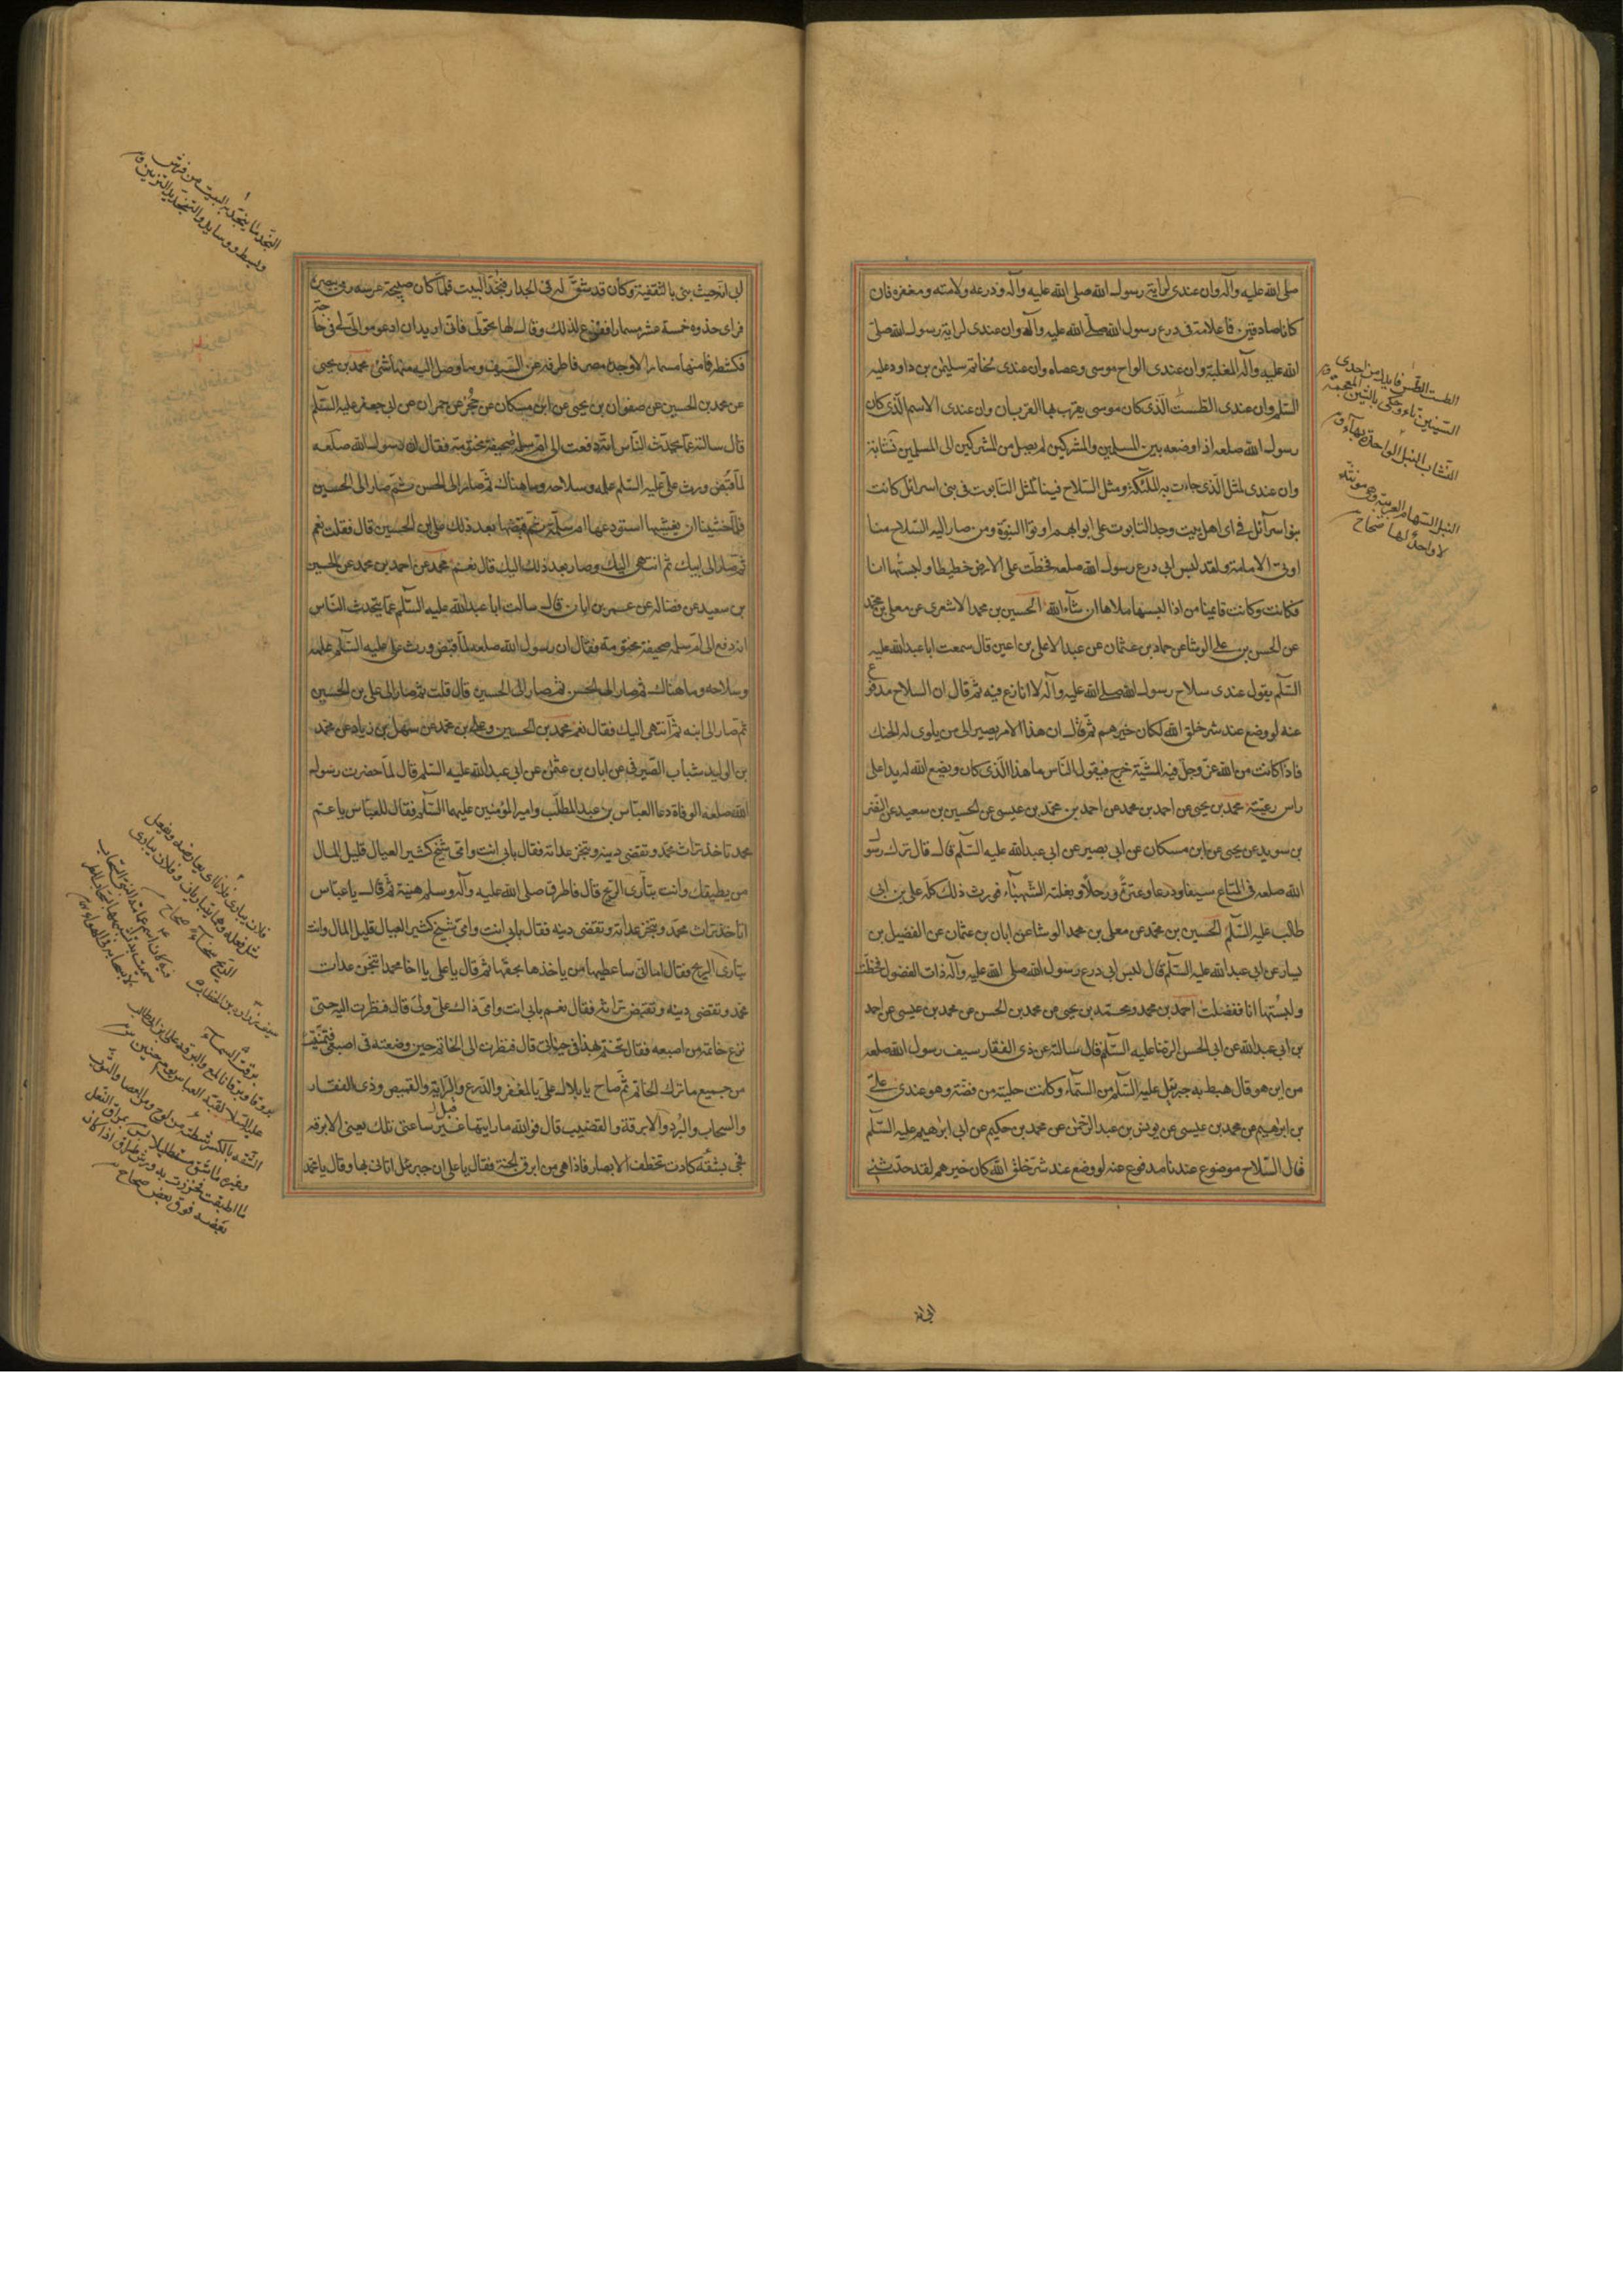 صلى الله عليه وآله وان عندى لراية رسول الله صلى الله عليه وآله ودرعه ولامته ومغفره فان
كانا صادقين فما علامة فى درع رسول الله صلى الله عليه وآله وان عندى لراية رسول الله صلى
الله عليه وآله المغلبة وان عندى الواح موسى وعصاه وان عندى لخاتم سليمن بن داود عليه
السلم وان عندى الطست الذى كان موسى يقرب بها القربان وان عندى الاسم الذى كان
رسول الله صلعم اذا وضعه بين المسلمين والمشركين لم يصل من المشركين الى المسلمين نشابة
وان عندى لمثل الذى جاءت به الملئكة ومثل السلاح فينا كمثل التابوت فى بنى اسرائل كانت
بنو اسرآئل فى اى اهل بيت وجد التابوت على ابوابهم اوتوا النبوة ومن صار اليه السلاح منا
اوتى الامامة ولقد لبس ابى درع رسول الله صلعم فخطت على الارض خطيطا ولبستها انا
فكانت وكانت وقايمنا من اذا لبسها ملاها ان شاء الله الحسين بن محمد الاشعرى عن معلى بن محمد
عن الحسن بن على الوشا عن حماد بن عثمان عن عبد الاعلى بن اعين قال سمعت ابا عبد الله عليه
السلم يقول عندى سلاح رسول الله صلى الله عليه وآله لا انازع فيه ثم قال ان السلاح مدفوع
عنه لو وضع عند شر خلق الله لكان خيرهم ثم قال ان هذا الامر يصير الى من يلوى له الحنك
فاذا كانت من الله عز وجل فيه المشية خرج فيقول الناس ما هذا الذى كان ويضع الله له يدا على
راس رعيته محمد بن يحيى عن احمد بن محمد عن احمد بن محمد بن عيسى عن الحسين بن سعيد عن النضر
بن سويد عن يحيى عن ابن مسكان عن ابى بصير عن ابى عبد الله عليه السلم قال قال ترك رسول
الله صلعم فى المتاع سيفا ودرعا وعنزة ورحلا وبغلته الشهباء فورث ذلك كله على بن ابى
طالب عليه السلم الحسين بن محمد عن معلى بن محمد الوشا عن ابان بن عثمان عن الفضيل بن
يسار عن ابى عبد الله عليه السلم قال لبس ابى درع رسول الله صلى الله عليه وآله ذات الفضول فخطت
ولبستها انا ففضلت احمد بن محمد ومحمد بن يحيى عن محمد بن الحسن عن محمد بن عيسى عن احمد
بن ابى عبد الله عن ابى الحسن الرضا عليه السلم قال سالته عن ذى الفقار سيف رسول الله صلعم
من اين هو قال هبط به جبرئيل عليه السلم من السماء وكانت حليته من فضة وهو عندى على
بن ابرهيم عن محمد بن عيسى عن يونس بن عبد الرحمن عن محمد بن حكيم عن ابى ابرهيم عليه السلم
قال السلاح موضوع عندنا مدفوع عنه لو وضع عند شر خلق الله كان خيرهم لقد حدثنى
الطست الطس فابدل من احدى
السينين تاء وحكى بالشين المعجمة ق
النشاب النبل الواحدة بهاء ق
النبل السهام العربية وهى مونثة
لا واحد لها صحاح
ابى انه
ابى انه حيث بنى بالثقفية وكان قد شق له فى الجدار فنجد البيت فلما كان صبيحة عرسه رمى ببصره
فراى حذوه خمسة عشر مسمارا ففزع لذلك وقال لها تحولى فانى اريد ان ادعو موالى لى فى حاجة
فكشطه فما منها مسمار الا وجده مصرفا طرفه عن السيف وما وصل اليه منها شئ محمد بن يحيى
عن محمد بن الحسين عن صفوان بن يحيى عن ابن مسكان عن حجر عن حمران عن ابى جعفر عليه السلم
قال سالته عما يتحدث الناس انه دفعت الى ام سلمة صحيفة مختومة فقال ان رسول الله صلعم
لما قبض ورث على عليه السلم علمه وسلاحه وما هناك ثم صار الى الحسن ثم صار الى الحسين
فلما خشينا ان يغشيها استودعها ام سلمة ثم قبضها بعد ذلك على بن الحسين قال فقلت نعم
ثم صار الى ابيك ثم انتهى اليك وصار بعد ذلك اليك قال نعم محمد عن احمد بن محمد عن الحسين
بن سعيد عن فضاله عن عمر بن ابان قال سالت ابا عبد الله عليه السلم عما يتحدث الناس
انه دفع الى ام سلمه صحيفة مختومة فقال ان رسول الله صلعم لما قبض ورث على عليه السلم علمه
وسلاحه وما هناك ثم صار الى الحسن ثم صار الى الحسين قال قلت ثم صار الى على بن الحسين
ثم صار الى ابنه ثم انتهى اليك فقال نعم محمد بن الحسين وعلى بن محمد عن سهل بن زياد عن محمد
بن الوليد شباب الصيرفى عن ابان بن عثمن عن ابى عبد الله عليه السلم قال لما حضرت رسول
الله صلعم الوفاة دعا العباس بن عبد المطلب وامير المؤمنين عليهما السلم فقال للعباس يا عم
محمد تاخذ تراث محمد وتقضى دينه وتنجز عداته فقال بابى انت وامى شيخ كثير العيال قليل المال
من يطيقك وانت تبارى الريح قال فاطرق صلى الله عليه وآله وسلم هنية ثم قال يا عباس
اتاخذ تراث محمد وتنجز عداته وتقضى دينه فقال بابى انت وامى شيخ كثير العيال قليل المال وانت
تبارى الريح فقال اما انى ساعطيها من ياخذها بحقها ثم قال يا على يا اخا محمد اتنجز عدات
محمد وتقضى دينه وتقبض تراثه فقال نعم بابى انت وامى ذاك على ولى قال فنظرت اليه حتى
نزع خاتمه من اصبعه فقال تختم بهذا فى حياتى قال فنظرت الى الخاتم حين وضعته فى اصبعى فتمنيت
من جميع ما ترك الخاتم ثم صاح يا بلال على بالمغفر والدرع والراية والقميص وذى الفقار
والسحاب والبرد والابرقة والقضيب قال فوالله ما رايتها غير ساعتى تلك يعنى الابرقه
قبل
فجئ بشقه كادت تخطف الابصار فاذا هى من ابرق الجنة فقال يا على ان جبرئل اتانى بها وقال يا محمد
النجد ما ينجد به البيت من فرش
وبسط ووسايد والتنجيد التزيين ق
فلان يبارى فلانا اى يعارضه ويفعل
مثل فعله وهما يتباريان وفلان يبارى
الريح سخاء صحاح